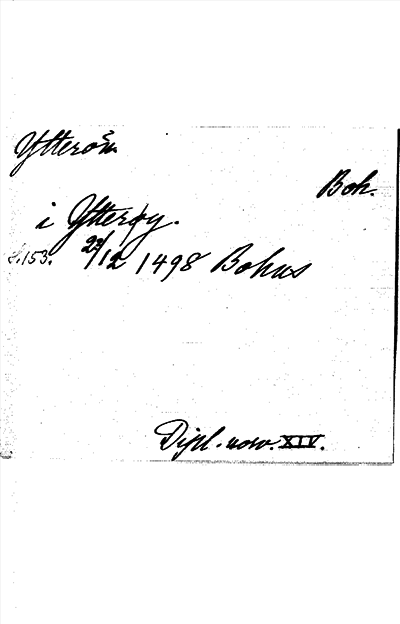 Ytterön
Boh.
i Ytterøy.
s. 153. 22/12 1498 Bohus
Dipl. norv. XIV.